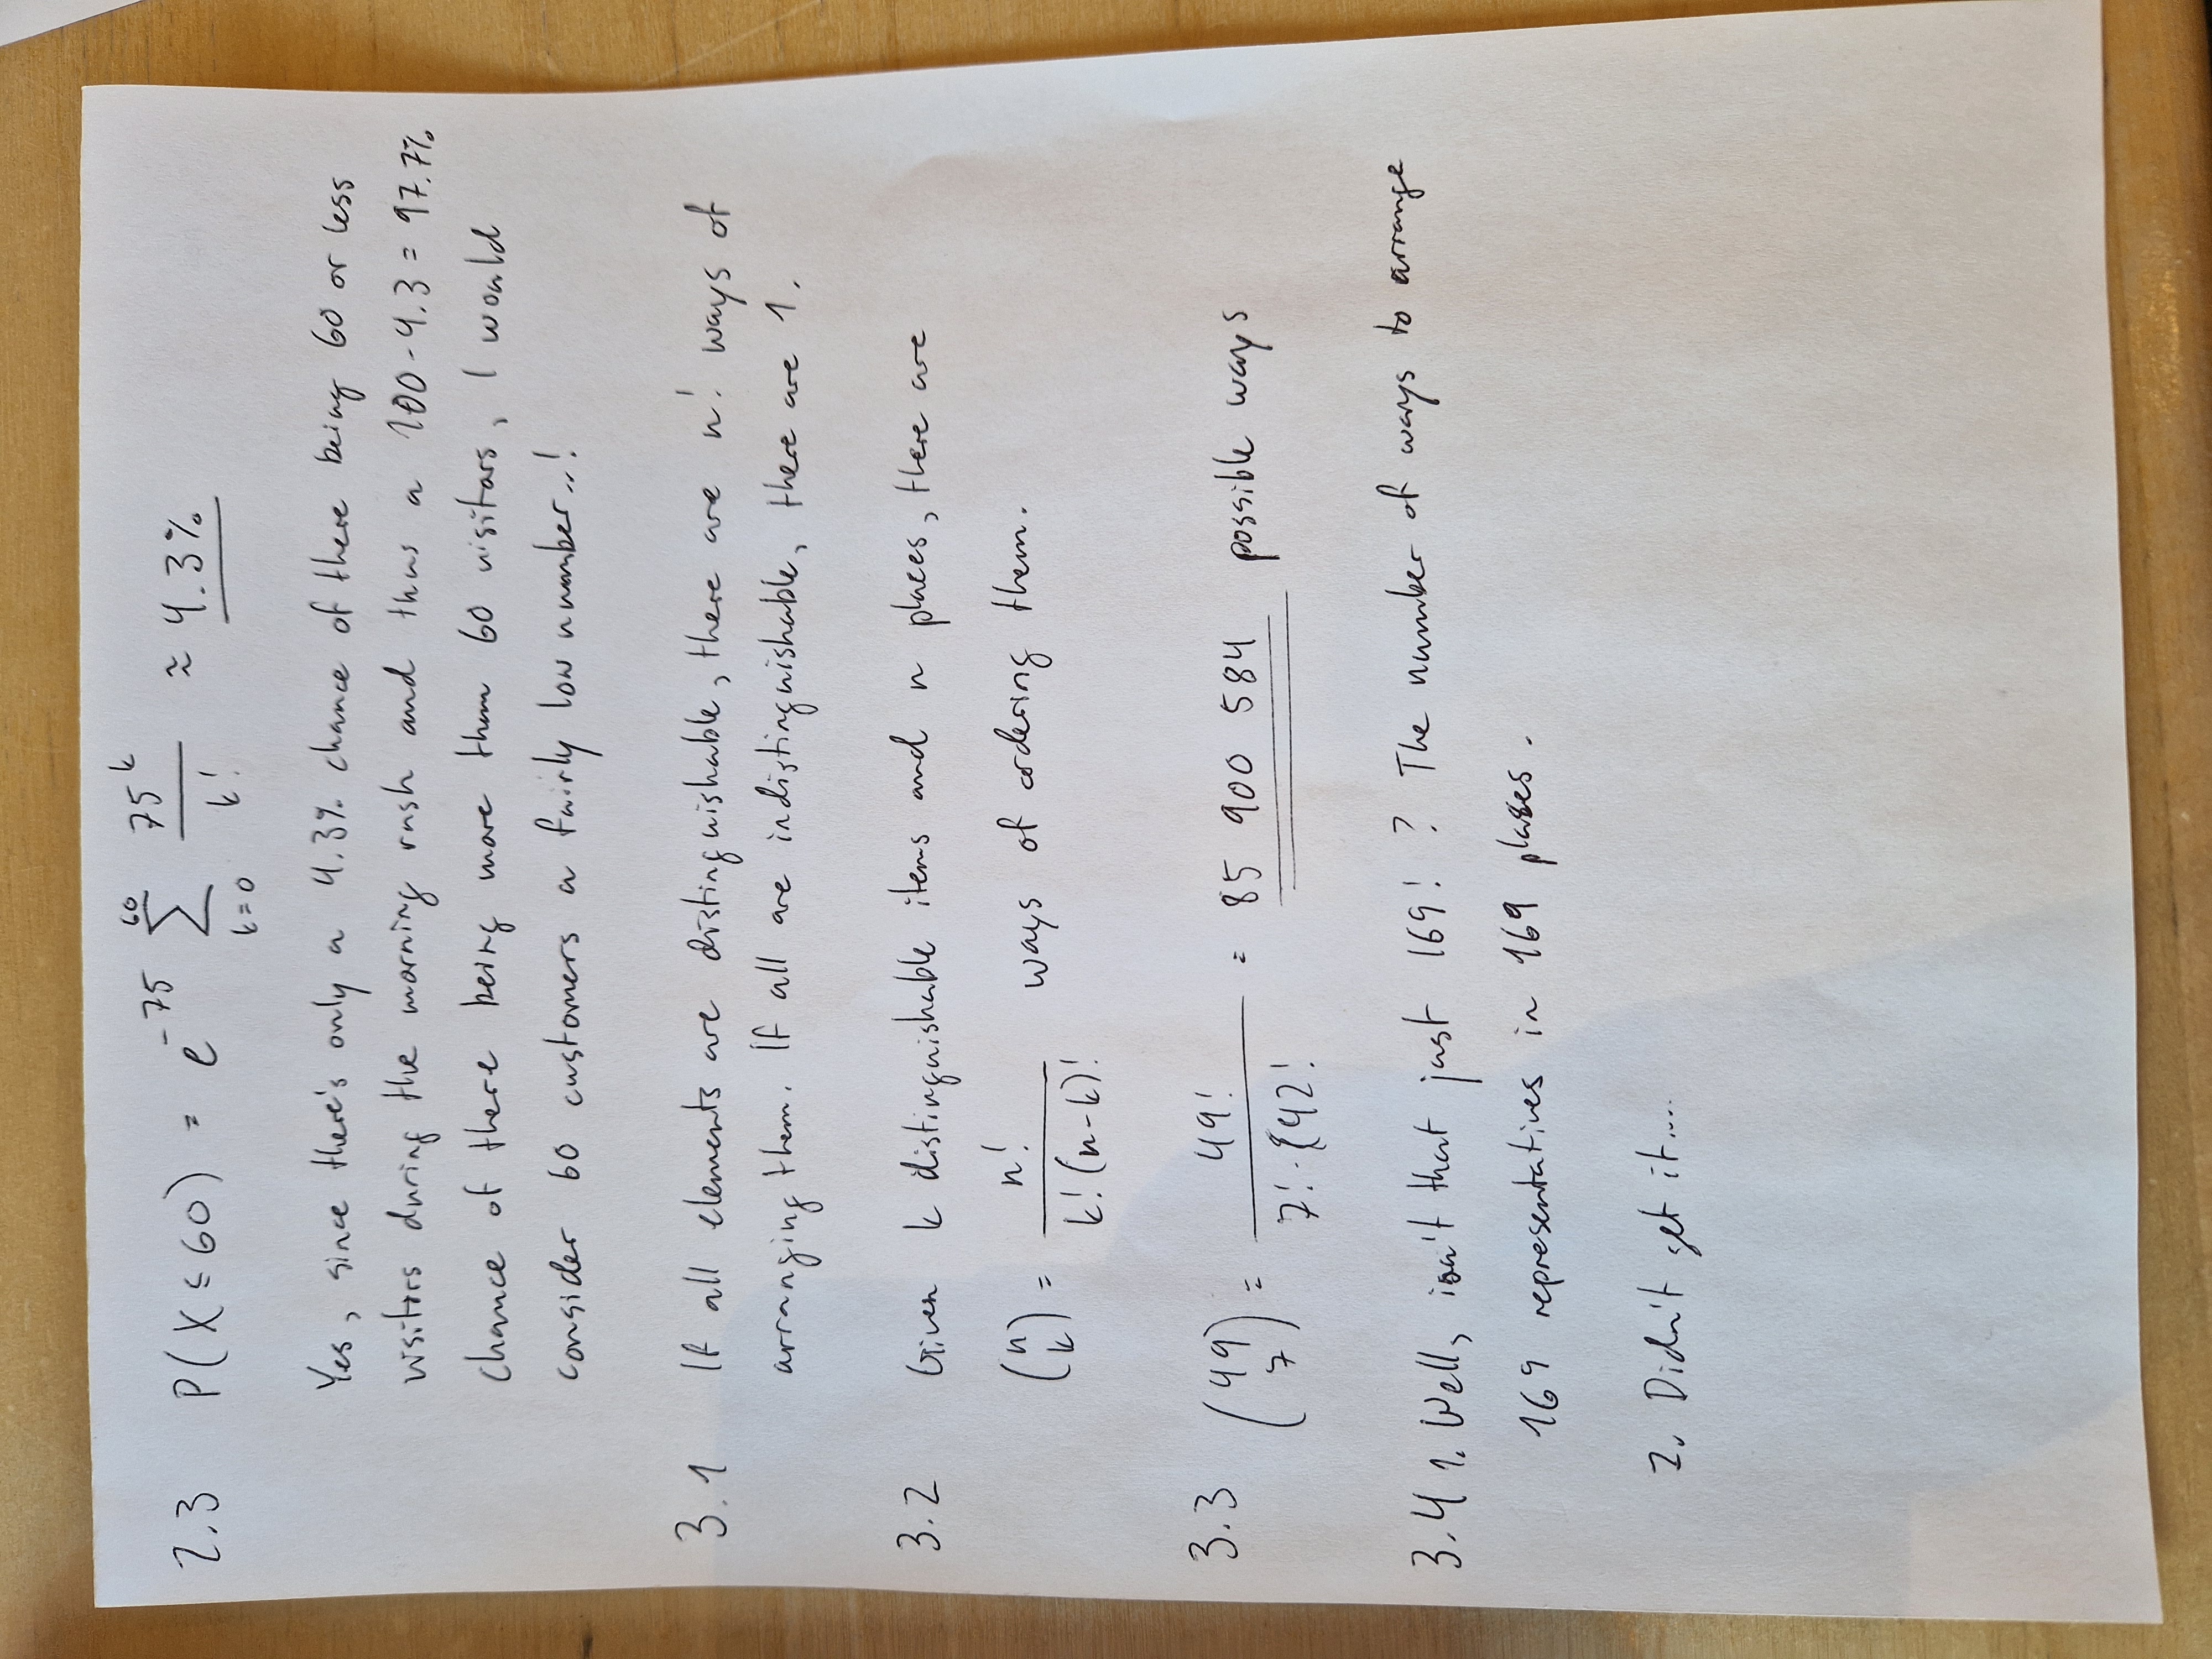 2.3 P(X ≤ 60) = e^{-75} \sum_{k=0}^{60} \frac{75^k}{k!} ≈ 4.3%
Yes, since there's only a 4.3% chance of there being 60 or less
visitors during the morning rush and thus a 100 - 4.3 = 97.7%
chance of there being more than 60 visitors, I would
consider 60 customers a fairly low nnumber..!
3.1 If all elements are distinguishable, there are n! ways of
arranging them. If all are indistinguishable, there are 1.
3.2 Given k distinguishable items and n places, there are
\binom{n}{k} = \frac{n!}{k!(n-k)!} ways of ordering them.
3.3 \binom{49}{7} = \frac{49!}{7! · 42!} = 85 900 584 possible ways
3.4 1. Well, isn't that just 169! ? The number of ways to arrange
169 representatives in 169 places.
2. Didn't get it....